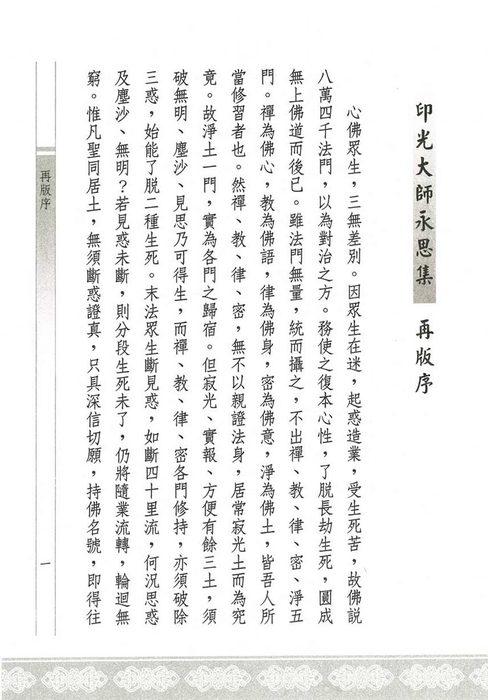 印光大師永思集 再版序
心佛眾生，三無差別。因眾生在迷，起惑造業，受生死苦，故佛說
八萬四千法門，以為對治之方。務使之復本心性，了脫長劫生死，圓成
無上佛道而後已。雖法門無量，統而攝之，不出禪、教、律、密、淨五
門。禪為佛心，教為佛語，律為佛身，密為佛意，淨為佛土，皆吾人所
當修習者也。然禪、教、律、密，無不以親證法身，居常寂光土而為究
竟。故淨土一門，實為各門之歸宿。但寂光、實報、方便有餘三土，須
破無明、塵沙、見思乃可得生，而禪、教、律、密各門修持，亦須破除
三惑，始能了脫二種生死。末法眾生斷見惑，如斷四十里流，何況思惑
及塵沙、無明？若見惑未斷，則分段生死未了，仍將隨業流轉，輪迴無
窮。惟凡聖同居土，無須斷惑證真，只具深信切願，持佛名號，即得往
再版序
一